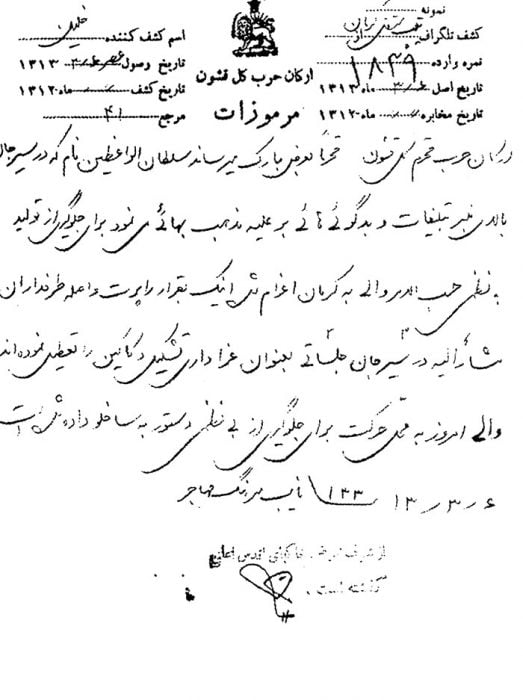 نمونه
کشف تلگراف از کرمان
نمره وارده ۱۸۳۹
تاریخ اصل ۶ / ۳ ماه ۱۳۱۳
تاریخ مخابره / ماه ۱۳۱۲
ارکان حرب کل قشون
مرموزات
اسم کشف کننده
تاریخ وصول ۱۳۱۳
تاریخ کشف / ماه ۱۳۱۲
مرجع ۴۱
ارکان حرب محترم کل قشون محترماً بعرض مبارک میرساند سلطان الواعظین نام که در سیرجان
بالای منبر تبلیغات و بدگوئی هائی بر علیه مذهب بهائی می نمود برای جلوگیری از تولید
بی نظمی حسب الامر والی به کرمان اعزام شد اینک بقرار راپرت واصله طرفداران
مشارالیه در سیرجان جلساتی بعنوان عزاداری تشکیل و دکاکین را تعطیل نموده‌اند
والی امروز به محل حرکت برای جلوگیری از بی نظمی دستور به ساخلو داده شده است
۶ / ۳ / ۱۳ ۱۳۳ نایب سرهنگ مهاجر
از شرف عرض خاکپای اقدس اعلی
گذشته است.